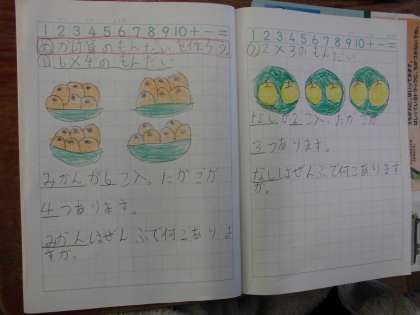 12345678910+-=
㋐かけ算のもんだいを作ろう。
① 6×4のもんだい
みかんが6こ入ったかごが
4つあります。
みかんはぜんぶで何こありま
すか。
12345678910+-=
② 2×3のもんだい
なしが2こ入ったかごが
3つあります。
なしはぜんぶで何こあります
か。